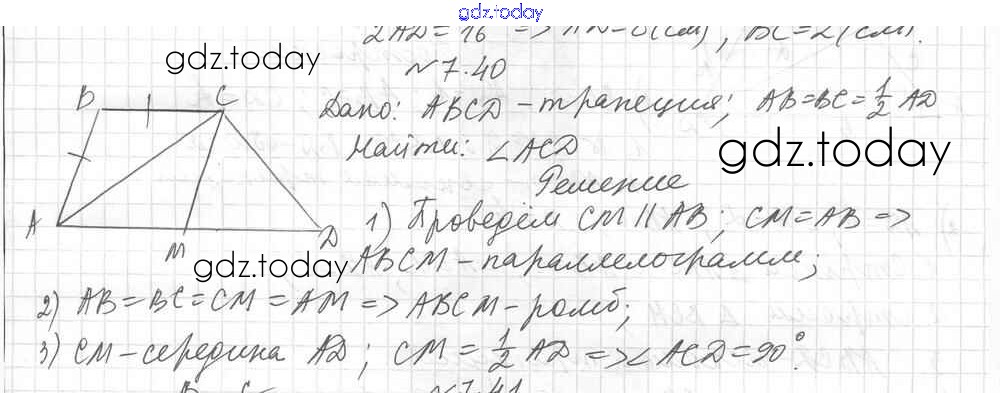 gdz.today
2AD = 16 => AD = 8 (см), BC = 2 (см).
gdz.today
№7.40
B C
Дано: ABCD - трапеция; AB = BC = 1/2 AD
Найти: ∠ACD
gdz.today
Решение
A M D
1) Проведём CM || AB; CM = AB =>
gdz.today
ABCM - параллелограмм;
2) AB = BC = CM = AM => ABCM - ромб;
3) CM - середина AD; CM = 1/2 AD => ∠ACD = 90°.
B C
№7.41